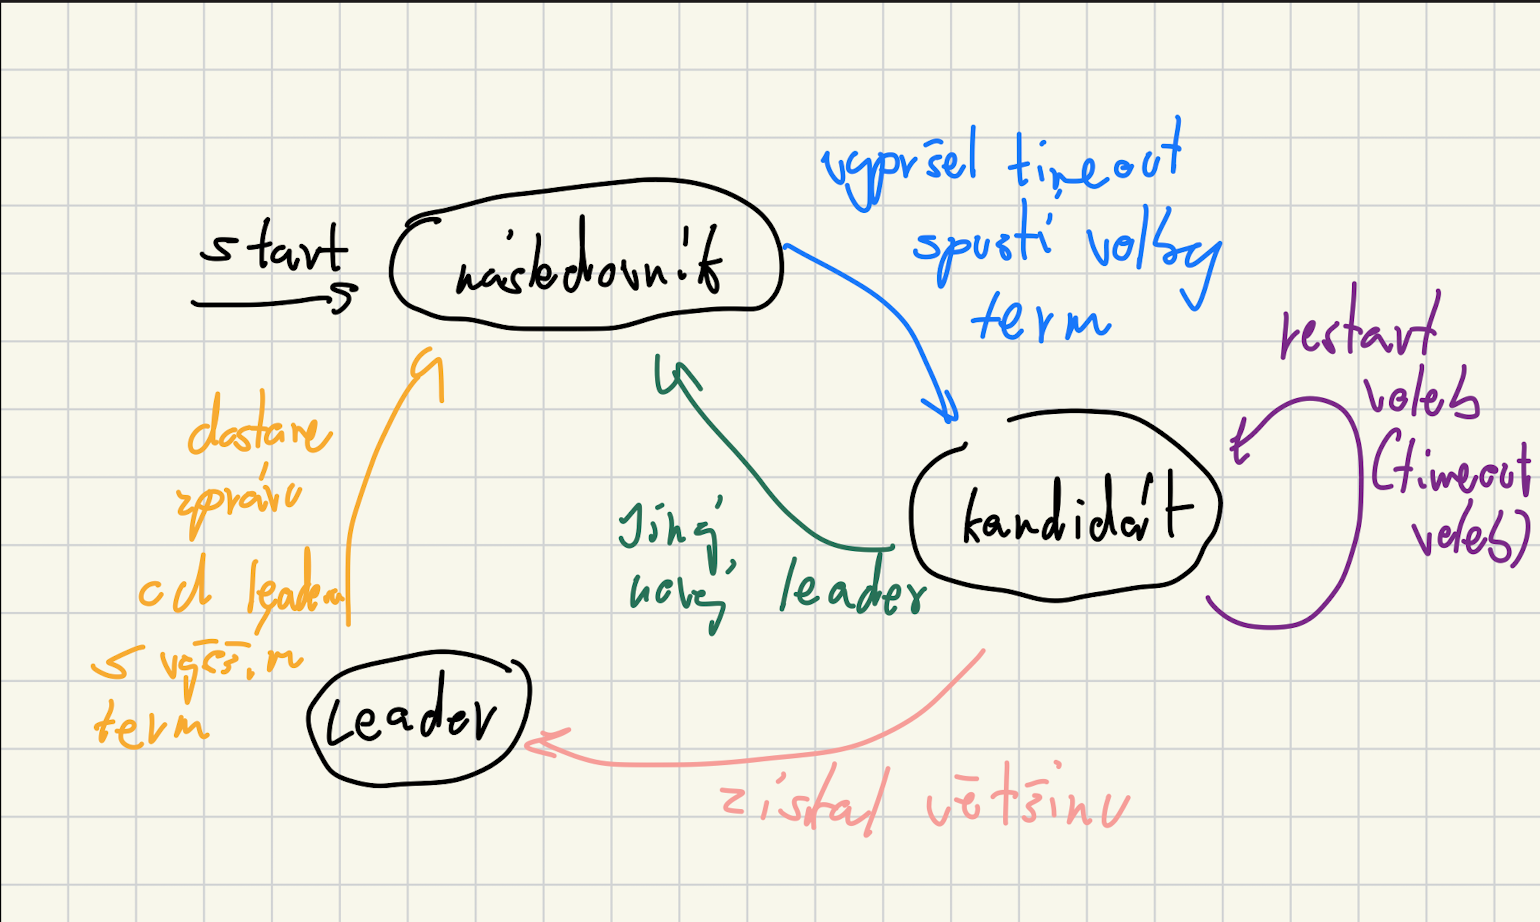 start
následovník
vypršel timeout
spustí volby
term
restart
voleb
(timeout
voleb)
kandidát
jiný,
nový leader
dostane
zprávu
od leadera
s vyšším
term
Leader
získal většinu